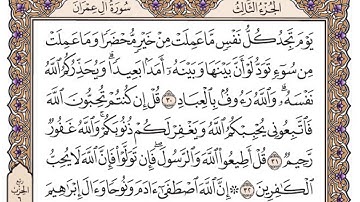 الجزء الثالث سورة آل عمران
يَوْمَ تَجِدُ كُلُّ نَفْسٍ مَّا عَمِلَتْ مِنْ خَيْرٍ مُّحْضَرًا وَمَا عَمِلَتْ
مِن سُوٓءٍ تَوَدُّ لَوْ أَنَّ بَيْنَهَا وَبَيْنَهُۥٓ أَمَدَۢا بَعِيدًا ۗ وَيُحَذِّرُكُمُ ٱللَّهُ
نَفْسَهُۥ ۗ وَٱللَّهُ رَءُوفٌۢ بِٱلْعِبَادِ ٣٠ قُلْ إِن كُنتُمْ تُحِبُّونَ ٱللَّهَ
فَٱتَّبِعُونِى يُحْبِبْكُمُ ٱللَّهُ وَيَغْفِرْ لَكُمْ ذُنُوبَكُمْ ۗ وَٱللَّهُ غَفُورٌ
رَّحِيمٌ ٣١ قُلْ أَطِيعُوا۟ ٱللَّهَ وَٱلرَّسُولَ ۖ فَإِن تَوَلَّوْا۟ فَإِنَّ ٱللَّهَ لَا يُحِبُّ
ٱلْكَـٰفِرِينَ ٣٢ ۞ إِنَّ ٱللَّهَ ٱصْطَفَىٰٓ ءَادَمَ وَنُوحًا وَءَالَ إِبْرَٰهِيمَ